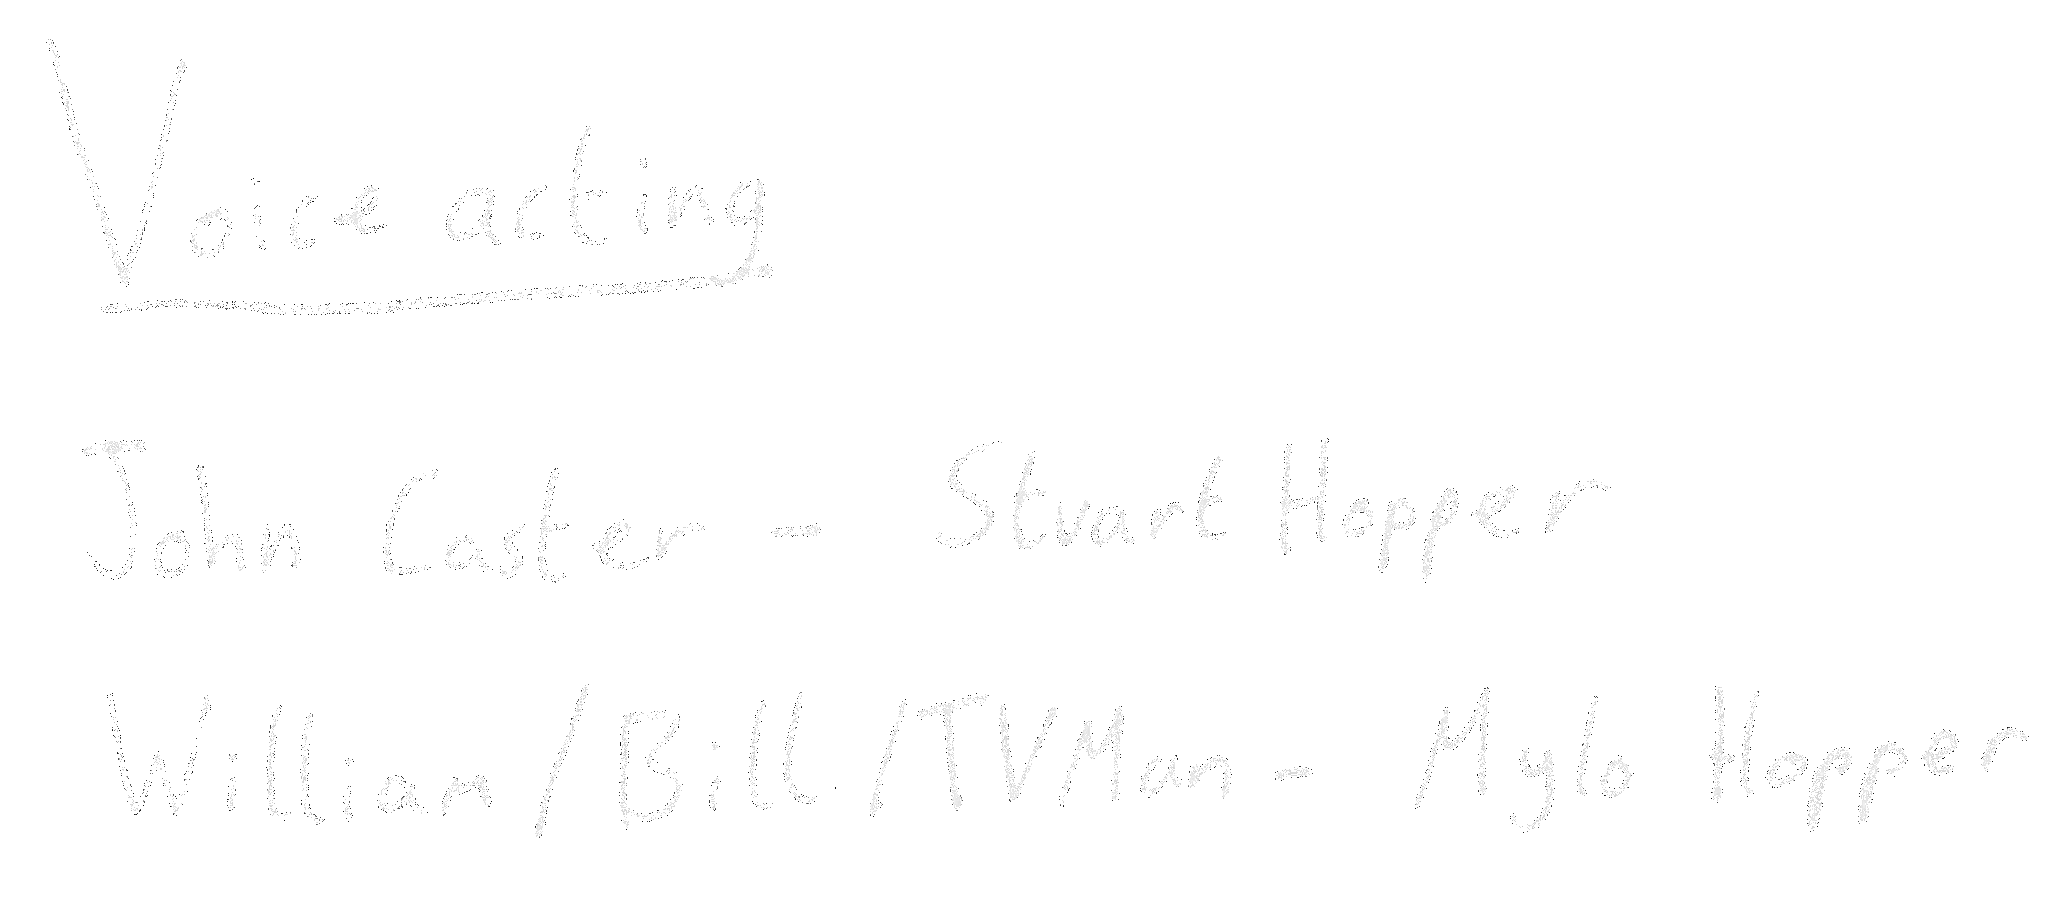 Voice acting
John Caster - Stuart Hopper
William/Bill/TV Man - Mylo Hopper